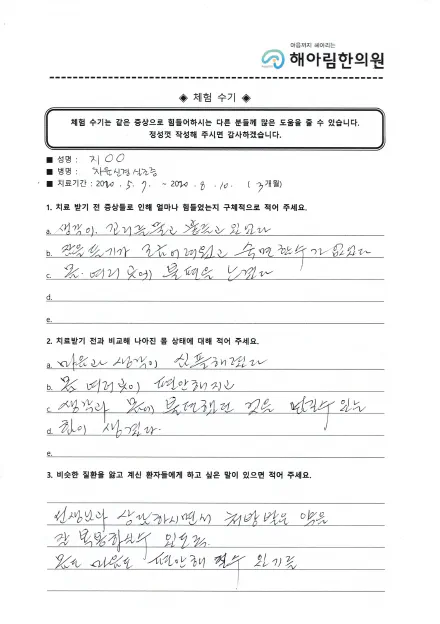 마음까지 헤아리는
해아림한의원
◈ 체험 수기 ◈
체험 수기는 같은 증상으로 힘들어하시는 다른 분들께 많은 도움을 줄 수 있습니다.
정성껏 작성해 주시면 감사하겠습니다.
■ 성명 : 지OO
■ 병명 : 자율신경실조증
■ 치료기간 : 2020. 5. 7. ~ 2020. 8. 10. ( 3개월)
1. 치료 받기 전 증상들로 인해 얼마나 힘들었는지 구체적으로 적어 주세요.
a. 생각이 꼬리를 물고 있었다
b. 잠을 들기가 어려웠고 숙면할수가 없었다
c. 몸 여러 곳에 불편을 느꼈다
d.
e.
2. 치료받기 전과 비교해 나아진 몸 상태에 대해 적어 주세요.
a. 마음과 생각이 심플해졌다
b. 몸 여러곳이 편안해지고
c. 생각과 몸에 불편했던 것을 수 있는
d. 힘이 생겼다.
e.
3. 비슷한 질환을 앓고 계신 환자들에게 하고 싶은 말이 있으면 적어 주세요.
선생님과 상담하시면서 처방받은 약을
잘 복용할수 있도록.
몸도 마음도 편안해 질수 있기를